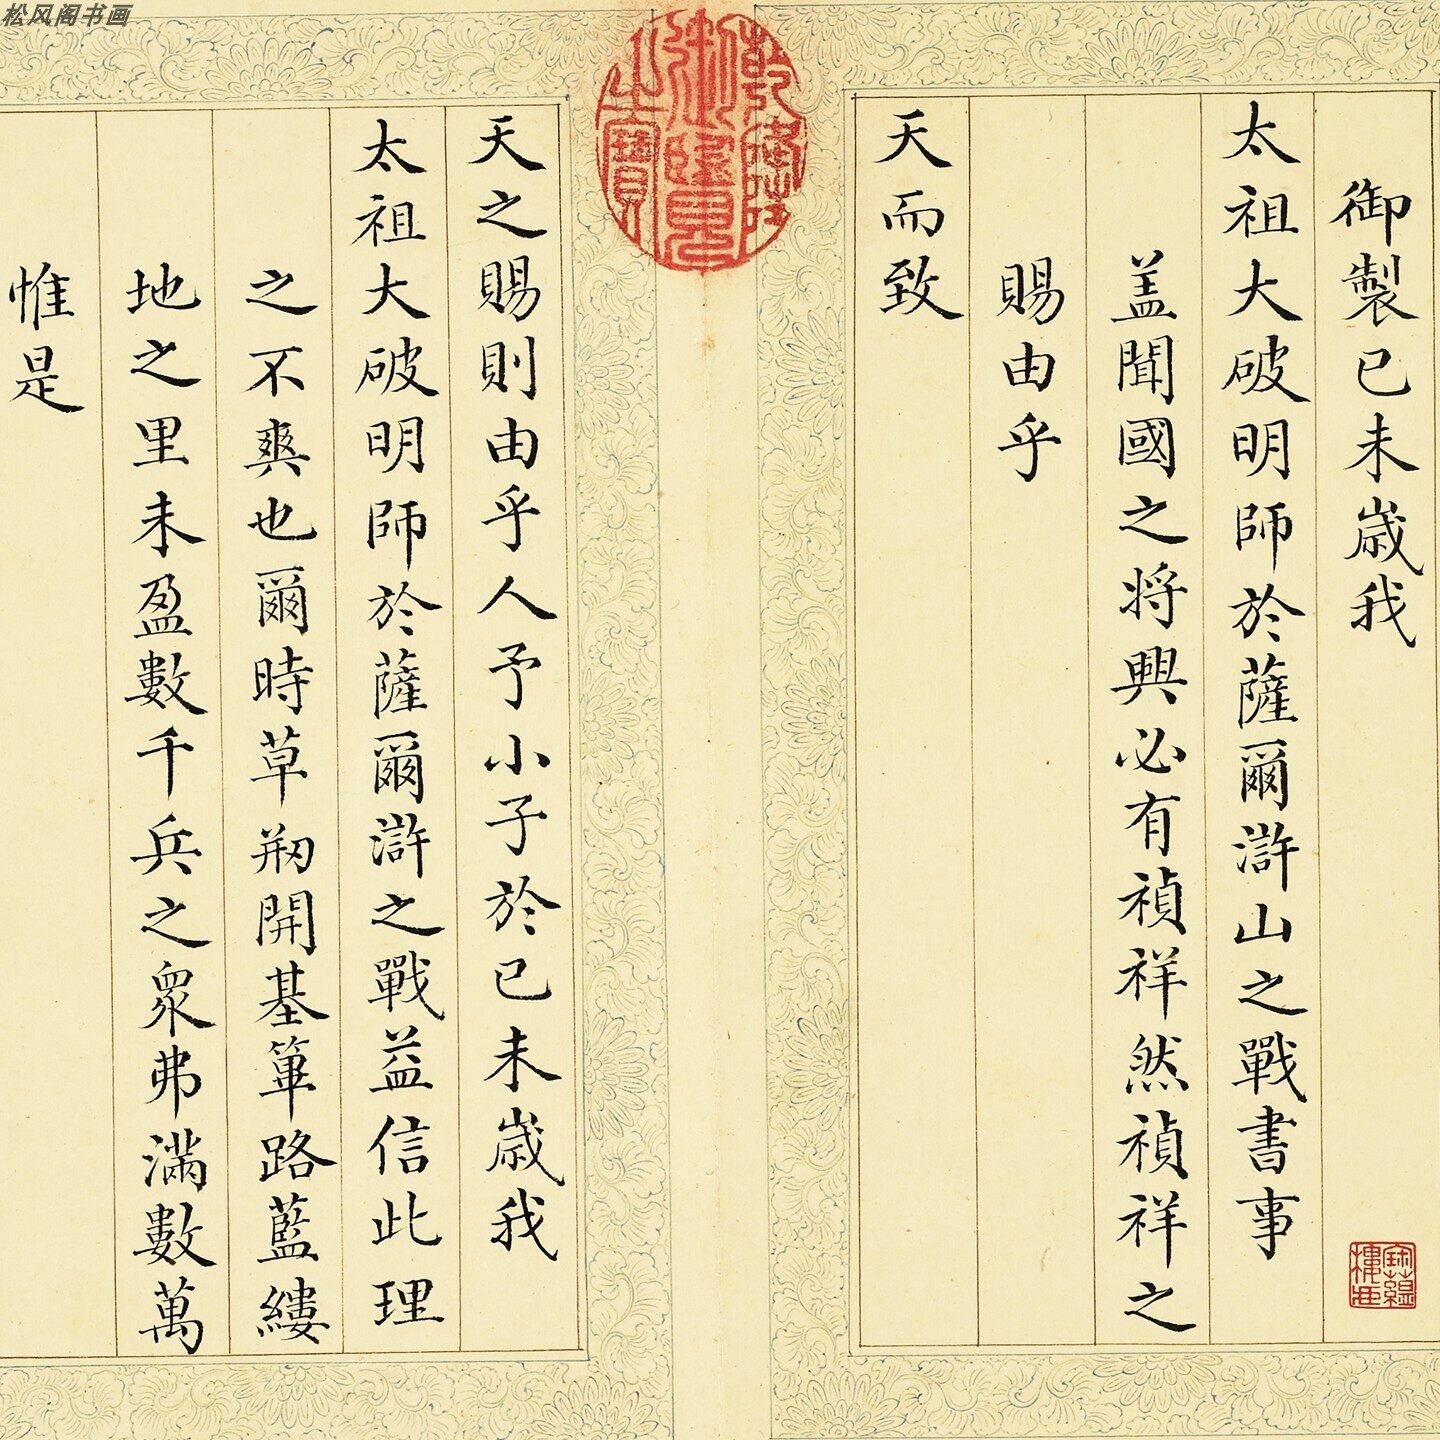 松风阁书画
御製己未歲我
太祖大破明師於薩爾滸山之戰書事
盖聞國之将興必有禎祥然禎祥之
賜由乎
天而致
乾隆御覽之寶
天之賜則由乎人予小子於己未歲我
太祖大破明師於薩爾滸之戰益信此理
之不爽也爾時草刱開基篳路藍縷
地之里未盈數千兵之衆弗滿數萬
惟是